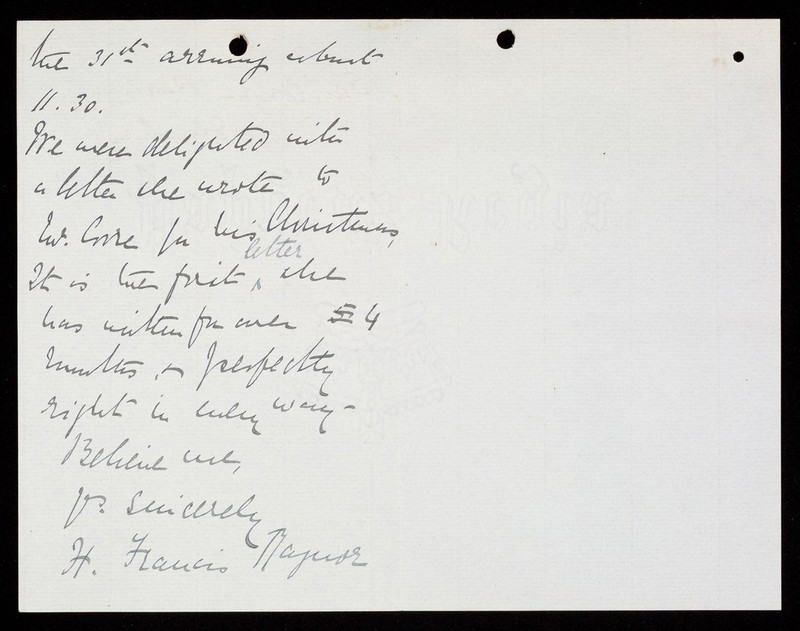 the 31st arriving about
11.30.
We were delighted with
a letter she wrote to
for his Christmas,
letter
It is the first ^ she
has written for over 5 4
months, & perfectly
right in every way -
Believe me,
Yrs. sincerely
H. Francis Raynor